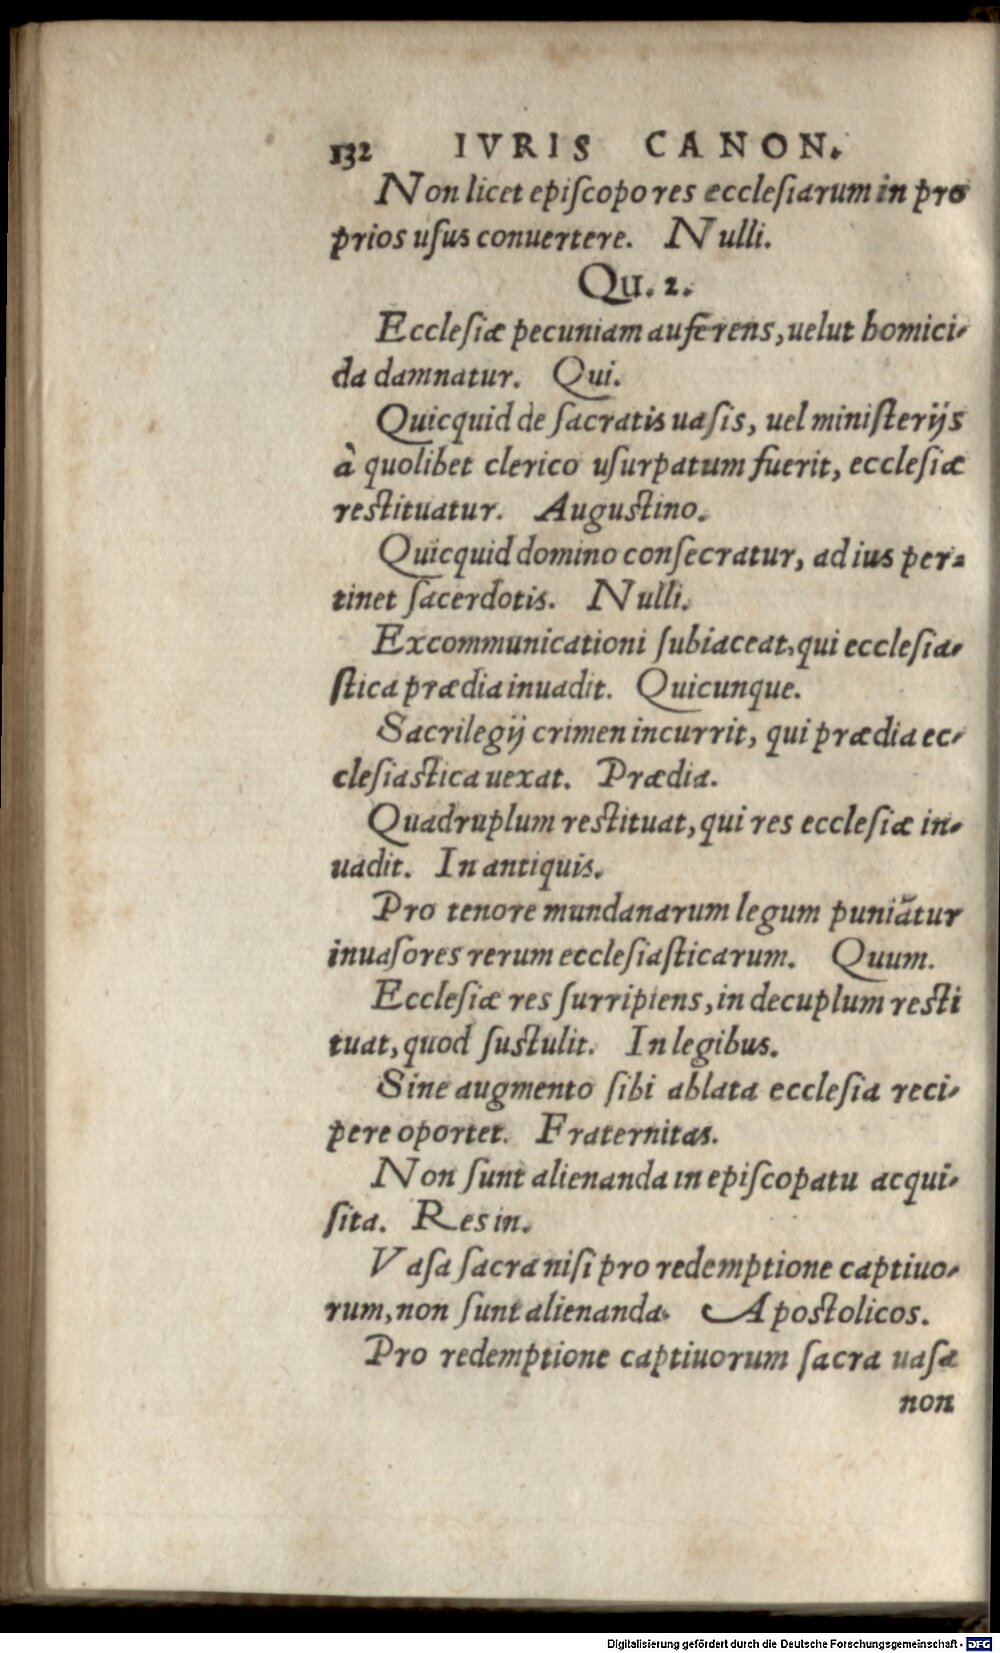 132 IVRIS CANON.
Non licet epiſcopo res eccleſiarum in pro
prios uſus conuertere. Nulli.
Qu. 2.
Eccleſiæ pecuniam auferens, uelut homici-
da damnatur. Qui.
Quicquid de ſacratis uaſis, uel miniſterijs
à quolibet clerico uſurpatum fuerit, eccleſiæ
reſtituatur. Auguſtino.
Quicquid domino conſecratur, ad ius per-
tinet ſacerdotis. Nulli.
Excommunicationi ſubiaceat, qui eccleſia-
ſtica prædia inuadit. Quicunque.
Sacrilegij crimen incurrit, qui prædia ec-
cleſiaſtica uexat. Prædia.
Quadruplum reſtituat, qui res eccleſiæ in-
uadit. In antiquis.
Pro tenore mundanarum legum puniãtur
inuaſores rerum eccleſiaſticarum. Quum.
Eccleſiæ res ſurripiens, in decuplum reſti
tuat, quod ſuſtulit. In legibus.
Sine augmento ſibi ablata eccleſia reci-
pere oportet. Fraternitas.
Non ſunt alienanda in epiſcopatu acqui-
ſita. Res in.
Vaſa ſacra niſi pro redemptione captiuo-
rum, non ſunt alienanda. Apoſtolicos.
Pro redemptione captiuorum ſacra uaſa
non
Digitalisierung gefördert durch die Deutsche Forschungsgemeinschaft - DFG